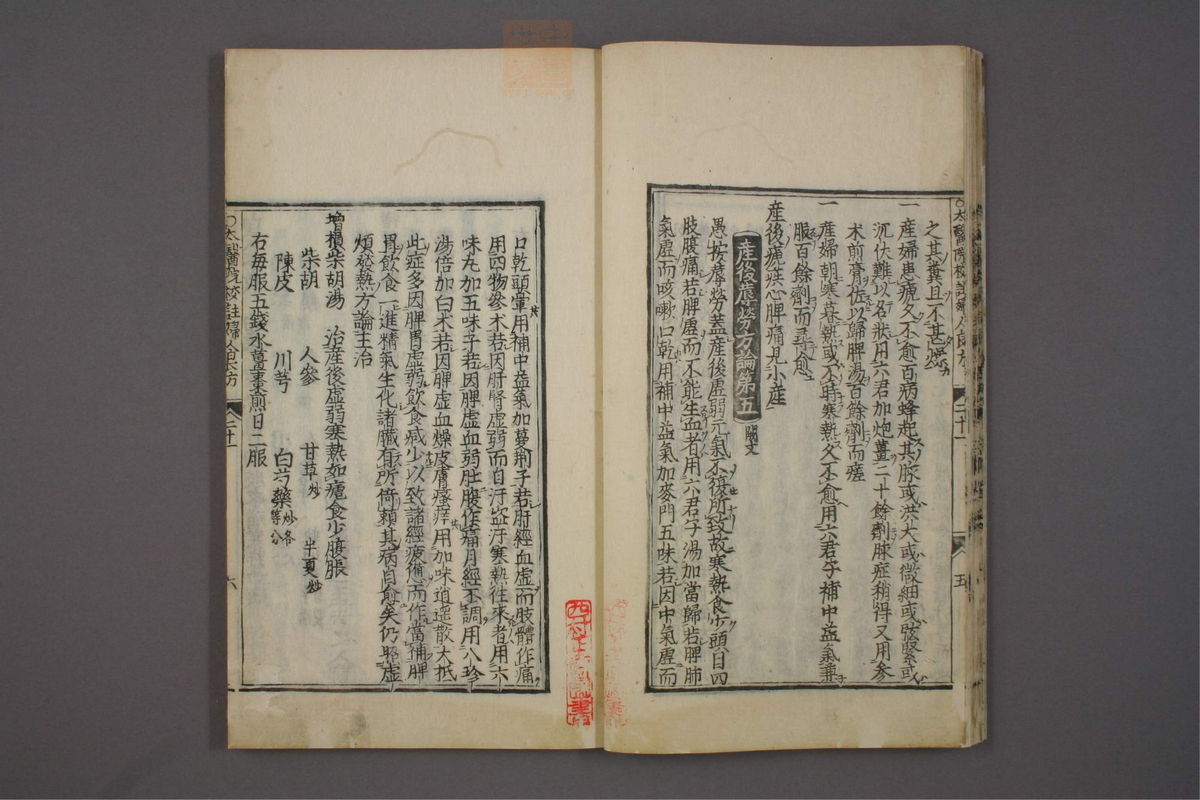 之其糞且不甚燃
一 産婦患瘧久不愈百病蜂起其脉或洪大或微細或弦緊或
沉伏難以名狀用六君加炮薑二十餘劑脉症稍得又用參
术煎膏佐以歸脾湯百餘劑而瘥
一 産婦朝寒暮熱或不時寒熱久不愈用六君子補中益氣兼
服百餘劑而尋愈
産後瘧疾心脾痛見小産
産後蓐勞方論第五 闕文
愚按蓐勞蓋産後虛弱元氣不復所致故寒熱食少頭目四
肢腹痛若脾虛而不能生血者用六君子湯加當歸若脾肺
氣虛而咳嗽口乾用補中益氣加麥門五味若因中氣虛而
○太醫院校註婦人良方 二十一 五
口乾頭暈用補中益氣加蔓荆子若肝經血虛而肢體作痛
用四物參术若因肝腎虛弱而自汗盜汗寒熱往來者用六
味丸加五味子若因脾虛血弱肚腹作痛月經不調用八珍
湯倍加白术若因脾虛血燥皮膚瘙痒用加味逍遥散大抵
此症多因脾胃虛弱飲食减少以致諸經疲憊而作當補脾
胃飲食一進精氣生化諸臓有所倚賴其病自愈矣仍照虛
煩發熱方論主治
增損柴胡湯 治産後虛弱寒熱如瘧食少腹脹
柴胡 人參 甘草炒 半夏炒
陳皮 川芎 白芍藥炒各等分
右毎服五錢水薑棗煎日二服
○太醫院校註婦人良方 二十一 六